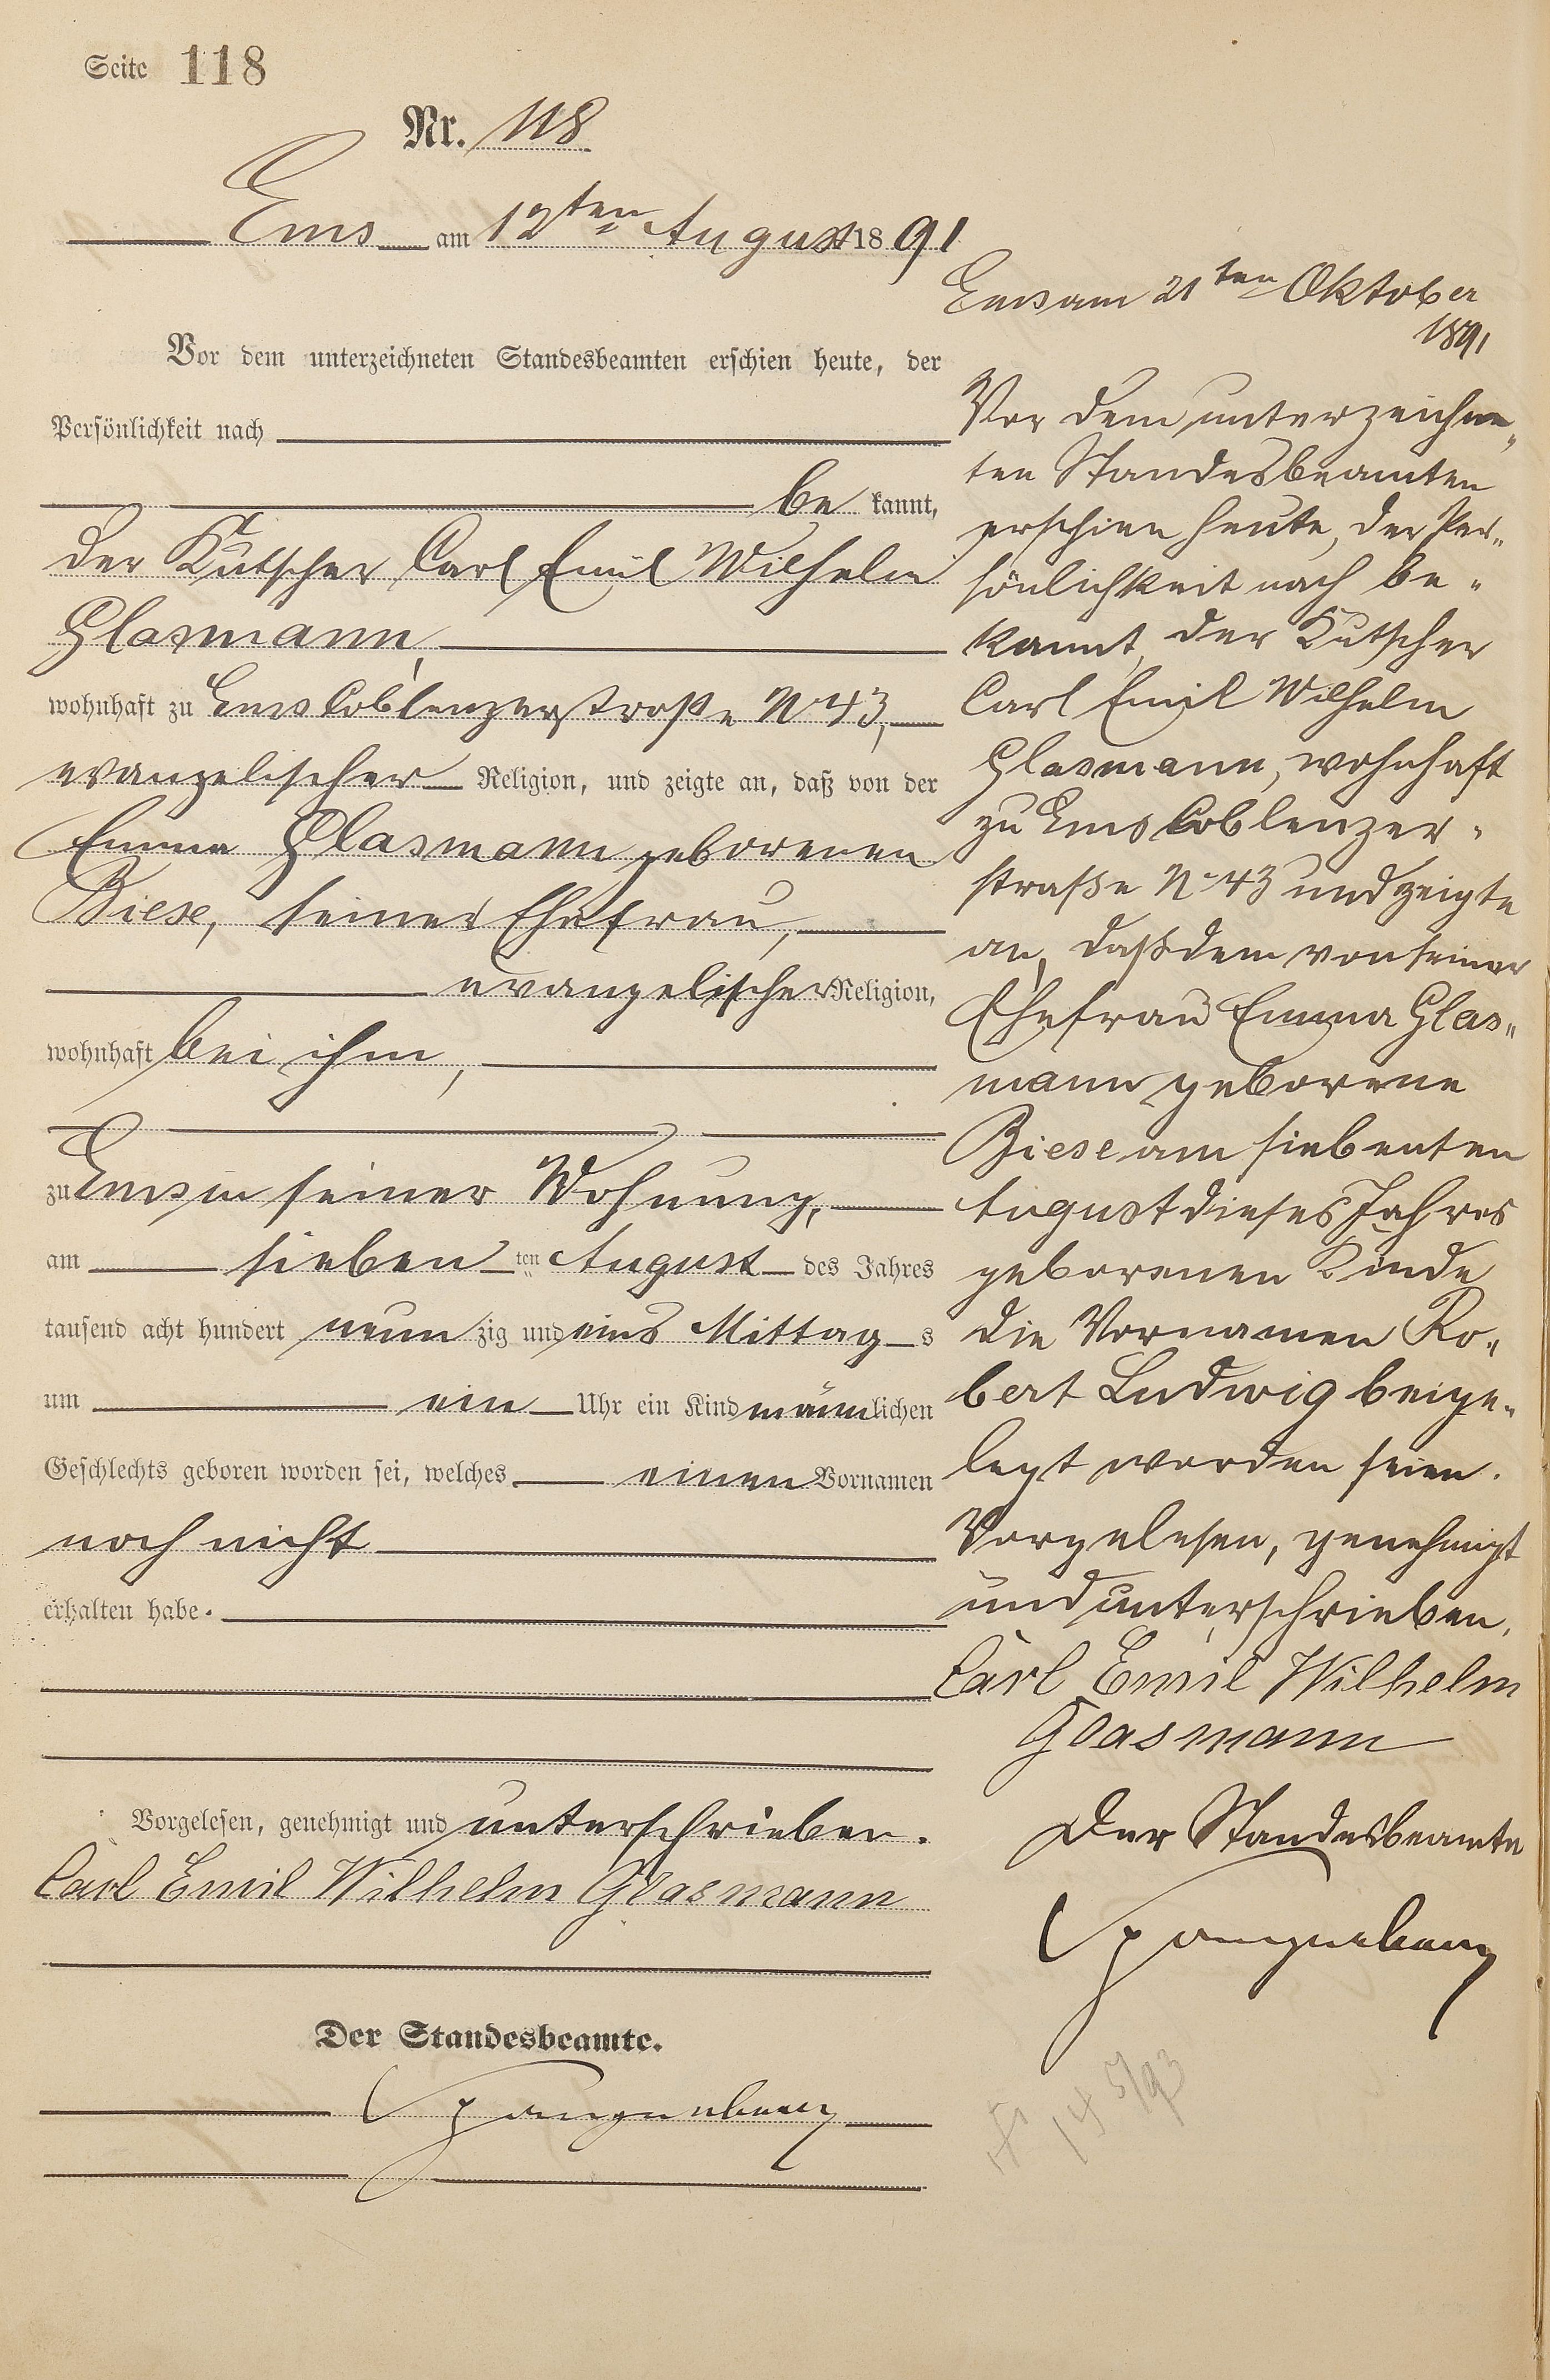 Seite 118
Nr. 118
Ems am 12ten August 1891
Vor dem unterzeichneten Standesbeamten erschien heute, der
Persönlichkeit nach
be kannt,
der Kutscher Carl Emil Wilhelm
Glasmann,
wohnhaft zu Ems Coblenzerstraße No 43,
evangelischer Religion, und zeigte an, daß von der
Emma Glasmann geborenen
Biese, seiner Ehefrau,
evangelischer Religion,
wohnhaft bei ihm,
zu Ems in seiner Wohnung,
am sieben ten August des Jahres
tausend acht hundert neun zig und eins Mittag s
um ein Uhr ein Kind männlichen
Geschlechts geboren worden sei, welches einen Vornamen
noch nicht
erhalten habe.
Vorgelesen, genehmigt und unterschrieben.
Carl Emil Wilhelm Glasmann
Der Standesbeamte.
Spangenberg
Ems am 21ten Oktober
1891
Vor dem unterzeichne„
ten Standesbeamten
erschien heute, der Per„
sönlichkeit nach be„
kannt, der Kutscher
Carl Emil Wilhelm
Glasmann, wohnhaft
zu Ems Coblenzer„
straße No 43 und zeigte
an, daß dem von seiner
Ehefrau Emma Glas„
mann geborene
Biese am siebenten
August dieses Jahres
geborenen Kinde
die Vornamen Ro„
bert Ludwig beige„
legt worden seien.
Vorgelesen, genehmigt
und unterschrieben.
Carl Emil Wilhelm
Glasmann
Der Standesbeamte
Spangenberg
14 5/93